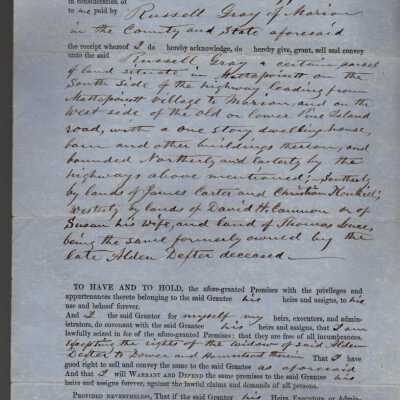 in consideration of
to me paid by Russell Gray of Marion
in the County and State aforesaid
the receipt whereof I do hereby acknowledge, do hereby give, grant, sell and convey
unto the said Russell Gray a certain parcel
of land situate in Mattapoisett on the
South side of the highway leading from
Mattapoisett village to Marion, and on the
West side of the old or lower Pine Island
road, with a one story dwelling house,
barn and other buildings thereon, and
bounded Northerly and Easterly by the
highways above mentioned; Southerly
by lands of James Carter and Christian
Westerly by lands of David H. Cannon or of
Susan his wife, and land of Thomas
being the same formerly owned by the
late Alden Dexter deceased
TO HAVE AND TO HOLD, the afore-granted Premises with the privileges and
appurtenances thereto belonging to the said Grantee his heirs and assigns, to his
use and behoof forever.
And I the said Grantor for myself my heirs, executors, and admin-
istrators, do covenant with the said Grantee his heirs and assigns, that I am
lawfully seized in fee of the afore-granted Premises; that they are free of all incumbrances,
Excepting the rights of the widow of said Alden
Dexter to Dower and Homestead therein That I have
good right to sell and convey the same to the said Grantee as aforesaid
And that I will WARRANT AND DEFEND the same premises to the said Grantee his
heirs and assigns forever, against the lawful claims and demands of all persons.
PROVIDED NEVERTHELESS, That if the said Grantor his Heirs, Executors or Admin-